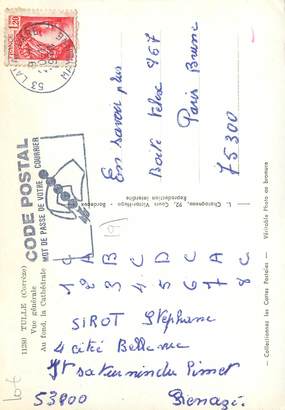 En savoir plus
Boite Telex 967
Paris Brune
75300
1 C
2 A
3 B
4 C
5 D
6 C
7 A
8 C
SIROT Stéphane
4 cité Bellevue
St saturnin du Limet
53800 Renazé
FRANCE
1,20
53 LA
CODE POSTAL
MOT DE PASSE DE VOTRE COURRIER
11280 TULLE (Corrèze)
Vue générale
Au fond, la Cathédrale
L. Chatagneau, 92, Cours Victor-Hugo - Bordeaux
Reproduction interdite
— Collectionnez les Cartes Postales — Véritable Photo au bromure